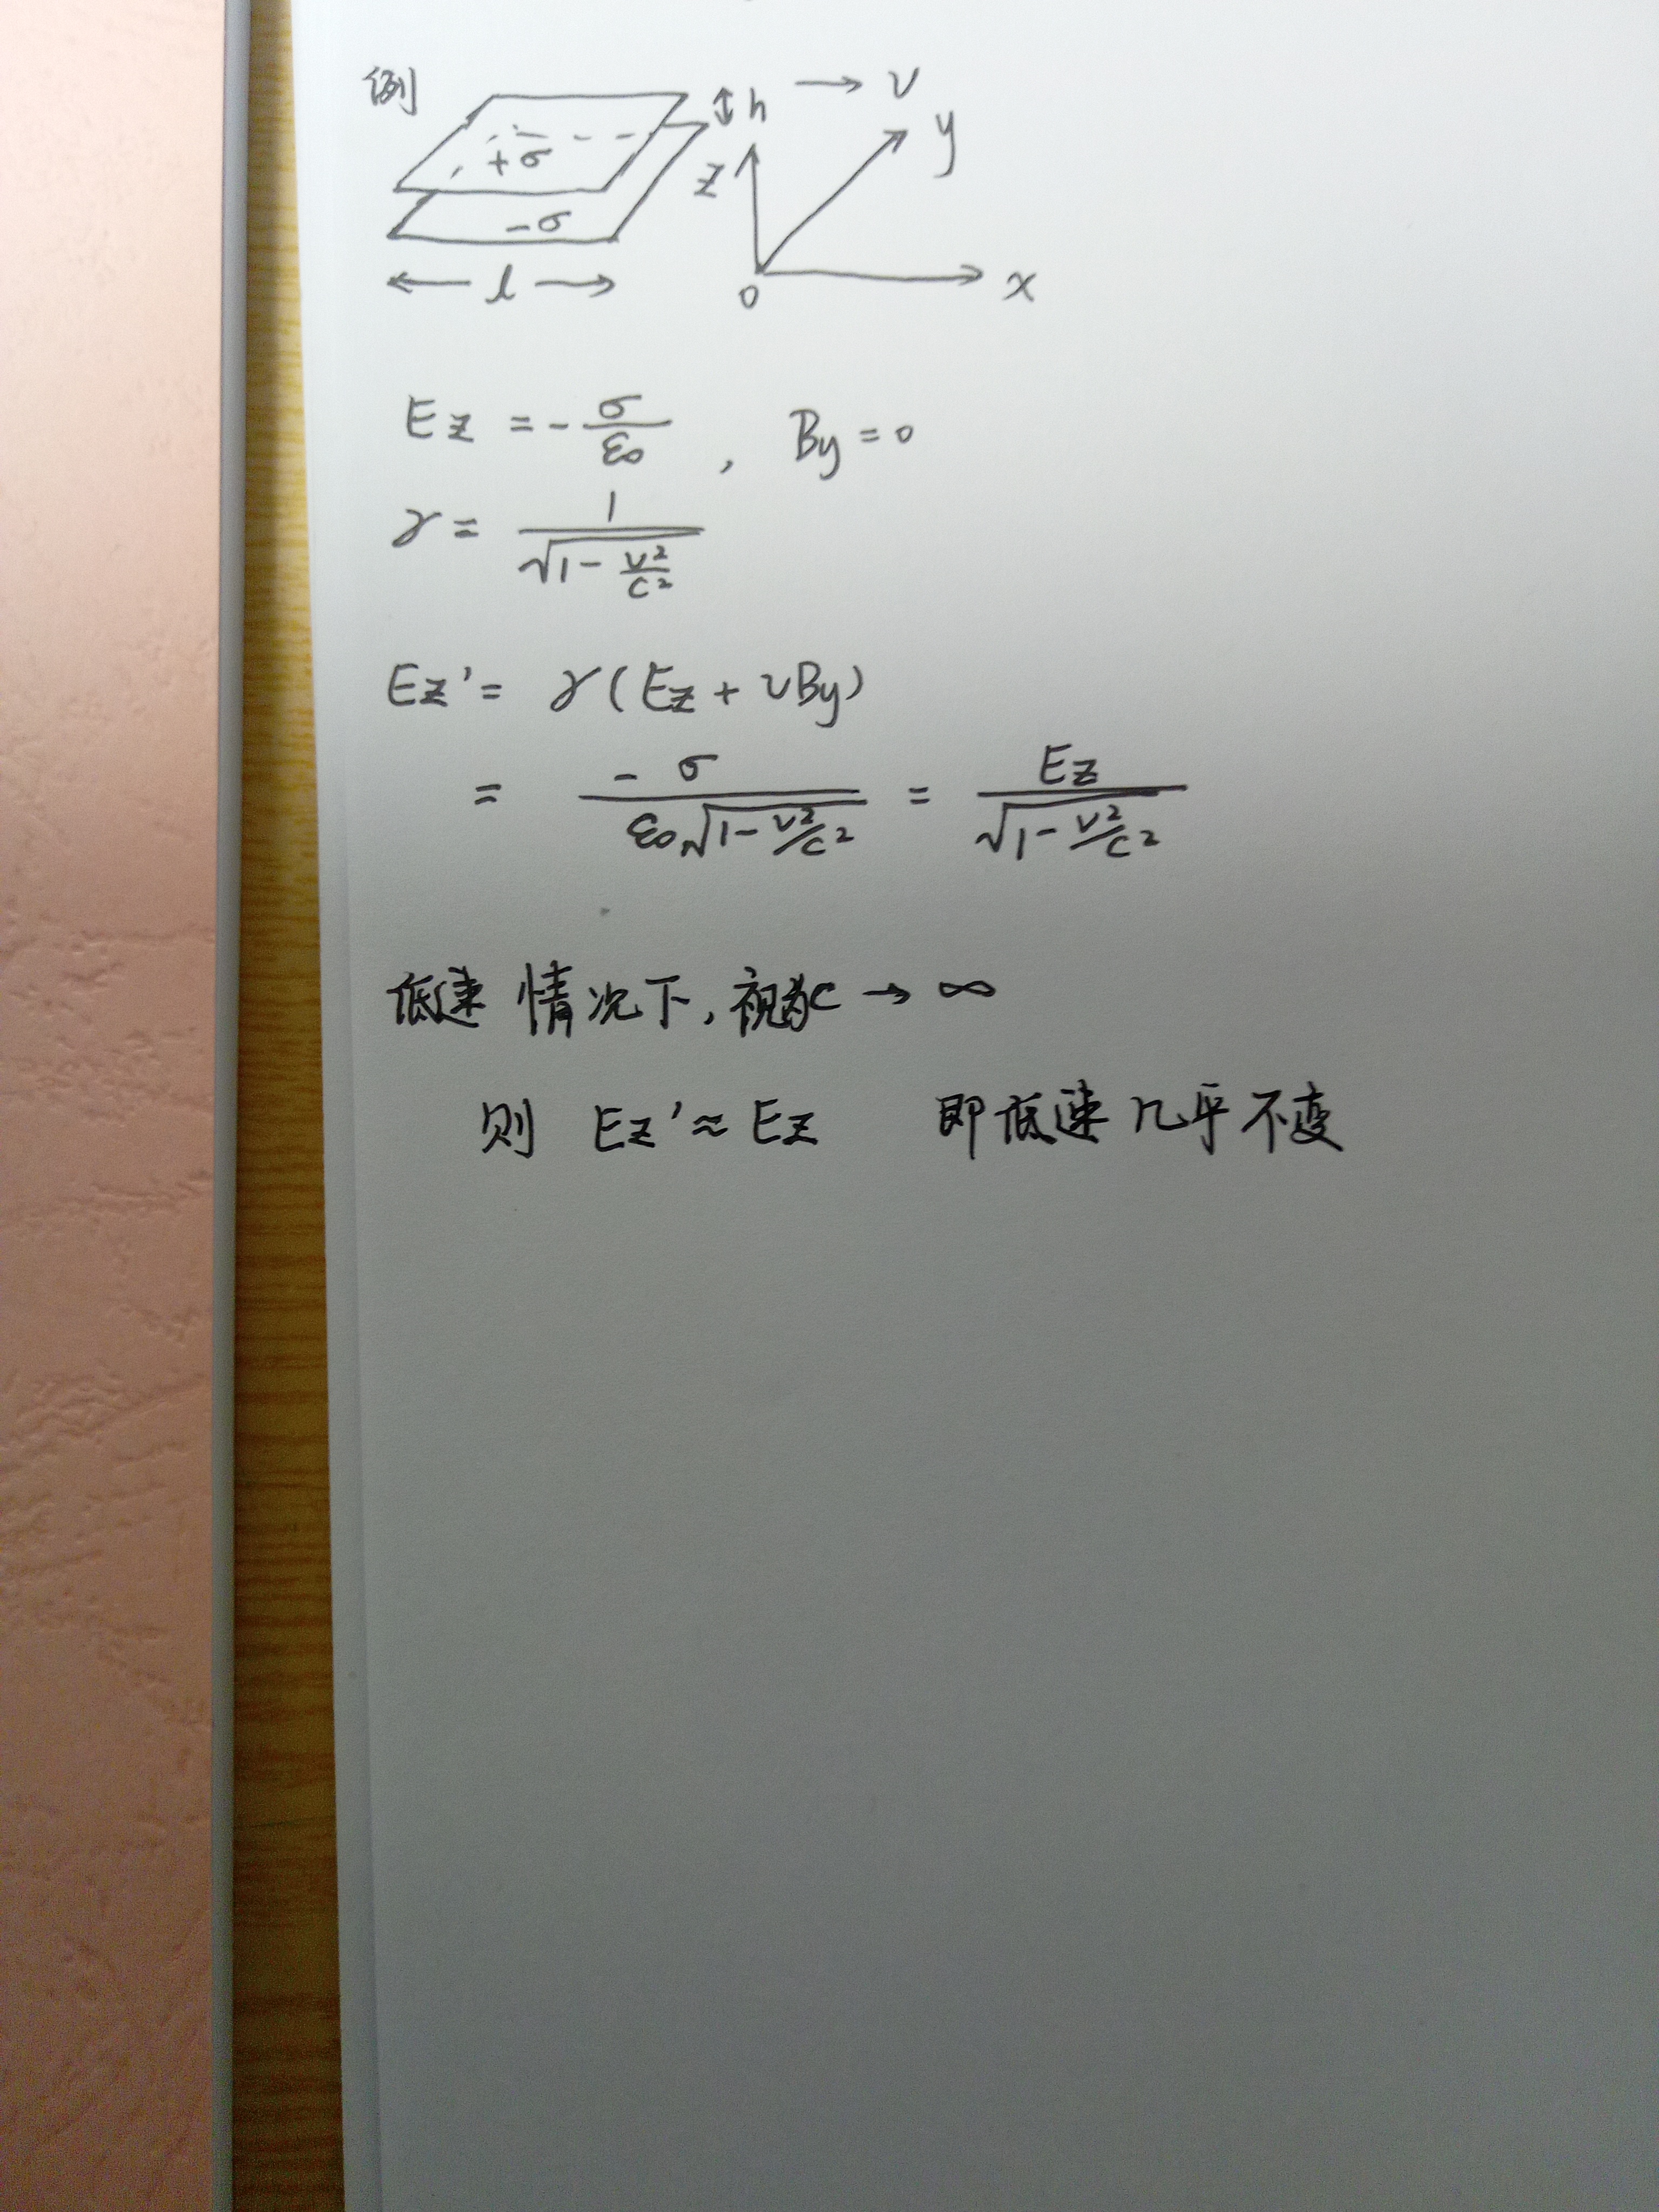 例
h → v
+σ
y
z
-σ
← l →
o
x
Ez = -σ/ε₀ , By = 0
γ = 1/√(1 - v²/c²)
Ez' = γ(Ez + vBy)
= -σ/(ε₀√(1 - v²/c²)) = Ez/√(1 - v²/c²)
低速情况下,视为c → ∞
则 Ez' ≈ Ez 即低速几乎不变